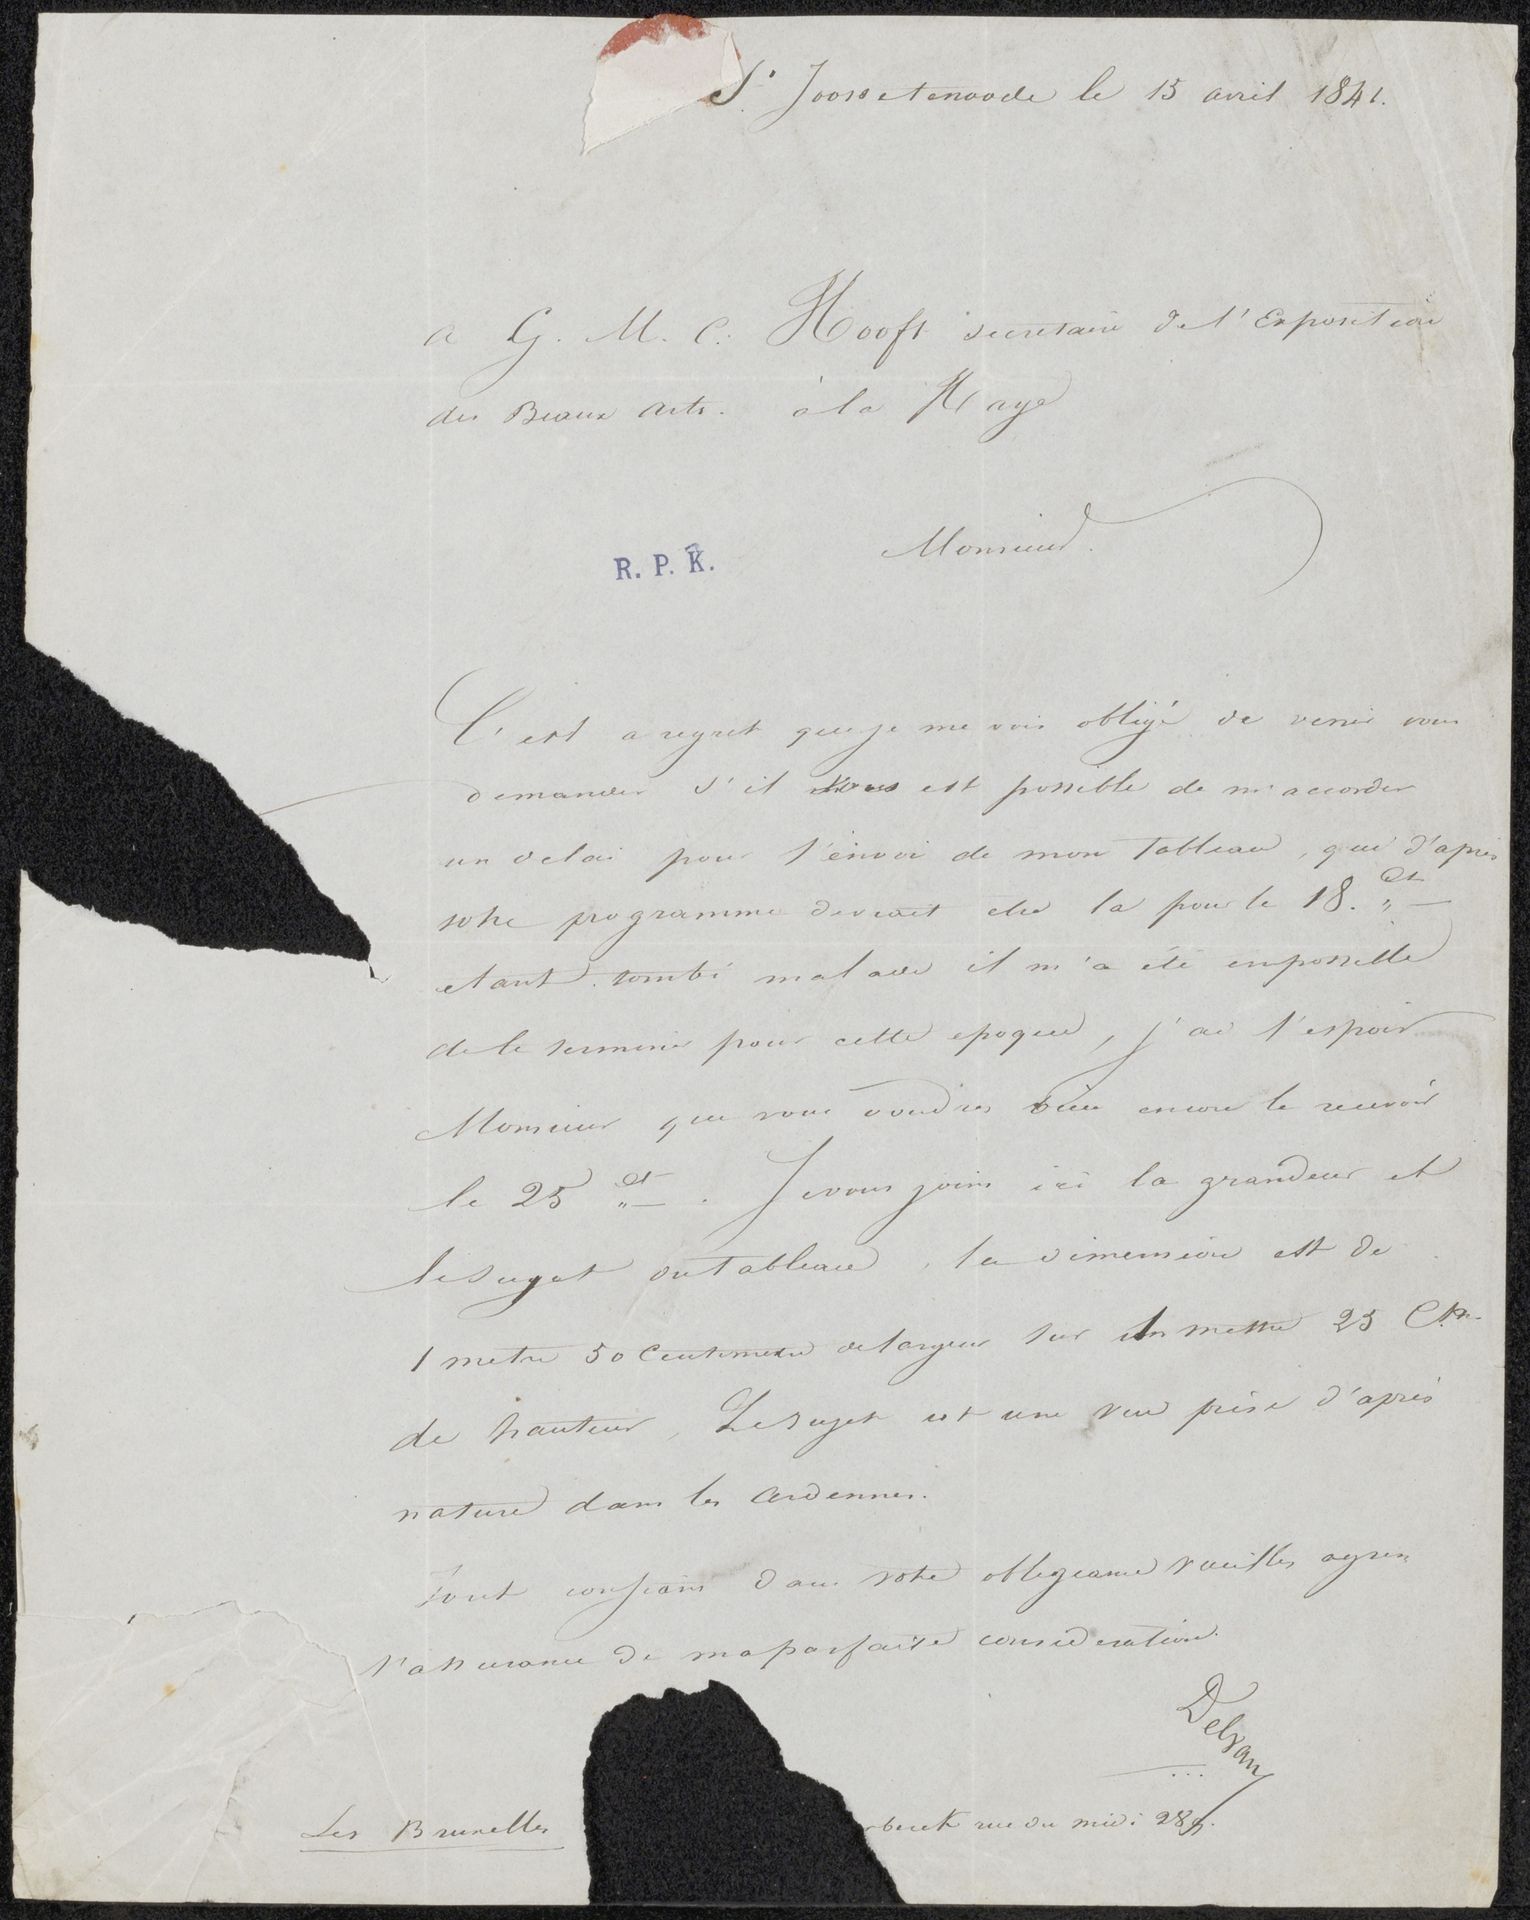 St Joossetenoode le 15 avril 1841.
a G. M. C. Hooft secretaire de l'Exposition
des Beaux Arts. à la Haye
Monsieur.
R. P. K.
C'est a regret que je me vois obligé de venir vous
demander s'il vous est possible de m'accorder
un delai pour l'envoi de mon Tableau, qui d'après
votre programme devrait etre la pour le 18. ct
etant tombé malade il m'a été impossible
de le terminer pour cette epoque, j'ai l'espoir
Monsieur que vous voudres bien encore le recevoir
le 25 ct. Je vous joins ici la grandeur et
le sujet du tableau, la dimension est de
1 metre 50 Centimetre de largeur sur un mettre 25 Ctm.
de hauteur, Le sujet est une vue prise d'après
nature dans les Ardennes.
Tout confiant dans votre obligeance veuilles agreer
l'assurance de ma parfaite consideration.
Delvaux
Les Bruxelles
rbeek rue du midi 28